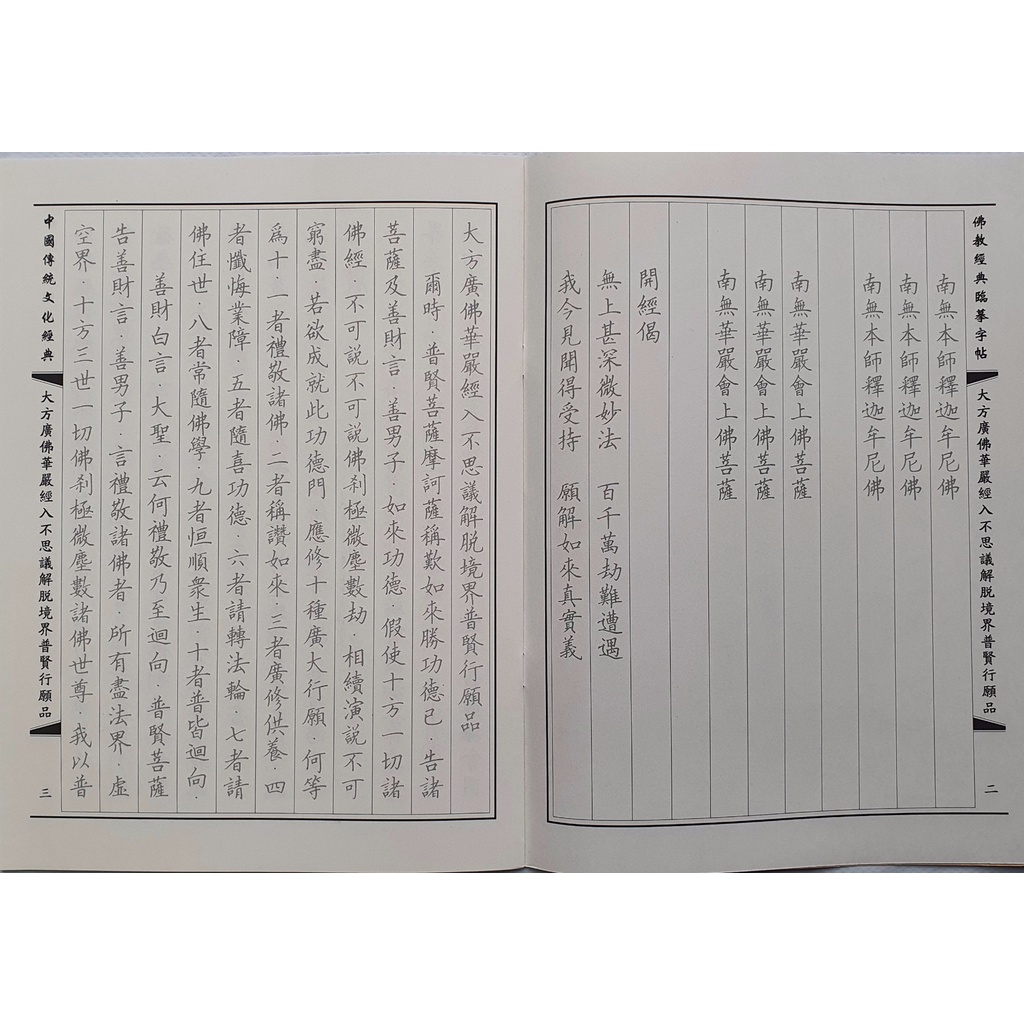 佛教經典臨摹字帖
大方廣佛華嚴經入不思議解脱境界普賢行願品
二
南無本師釋迦牟尼佛
南無本師釋迦牟尼佛
南無本師釋迦牟尼佛
南無華嚴會上佛菩薩
南無華嚴會上佛菩薩
南無華嚴會上佛菩薩
開經偈
無上甚深微妙法 百千萬劫難遭遇
我今見聞得受持 願解如來真實義
大方廣佛華嚴經入不思議解脱境界普賢行願品
爾時·普賢菩薩摩訶薩稱歎如來勝功德已·告諸
菩薩及善財言·善男子·如來功德·假使十方一切諸
佛經·不可説不可説佛刹極微塵數劫·相續演説不可
窮盡·若欲成就此功德門·應修十種廣大行願·何等
爲十·一者禮敬諸佛·二者稱讚如來·三者廣修供養·四
者懺悔業障 五者隨喜功德·六者請轉法輪·七者請
佛住世·八者常隨佛學·九者恒順衆生·十者普皆迴向·
善財白言·大聖·云何禮敬乃至迴向·普賢菩薩
告善財言·善男子·言禮敬諸佛者·所有盡法界·虛
空界·十方三世一切佛刹極微塵數諸佛世尊·我以普
中國傳統文化經典
大方廣佛華嚴經入不思議解脱境界普賢行願品
三